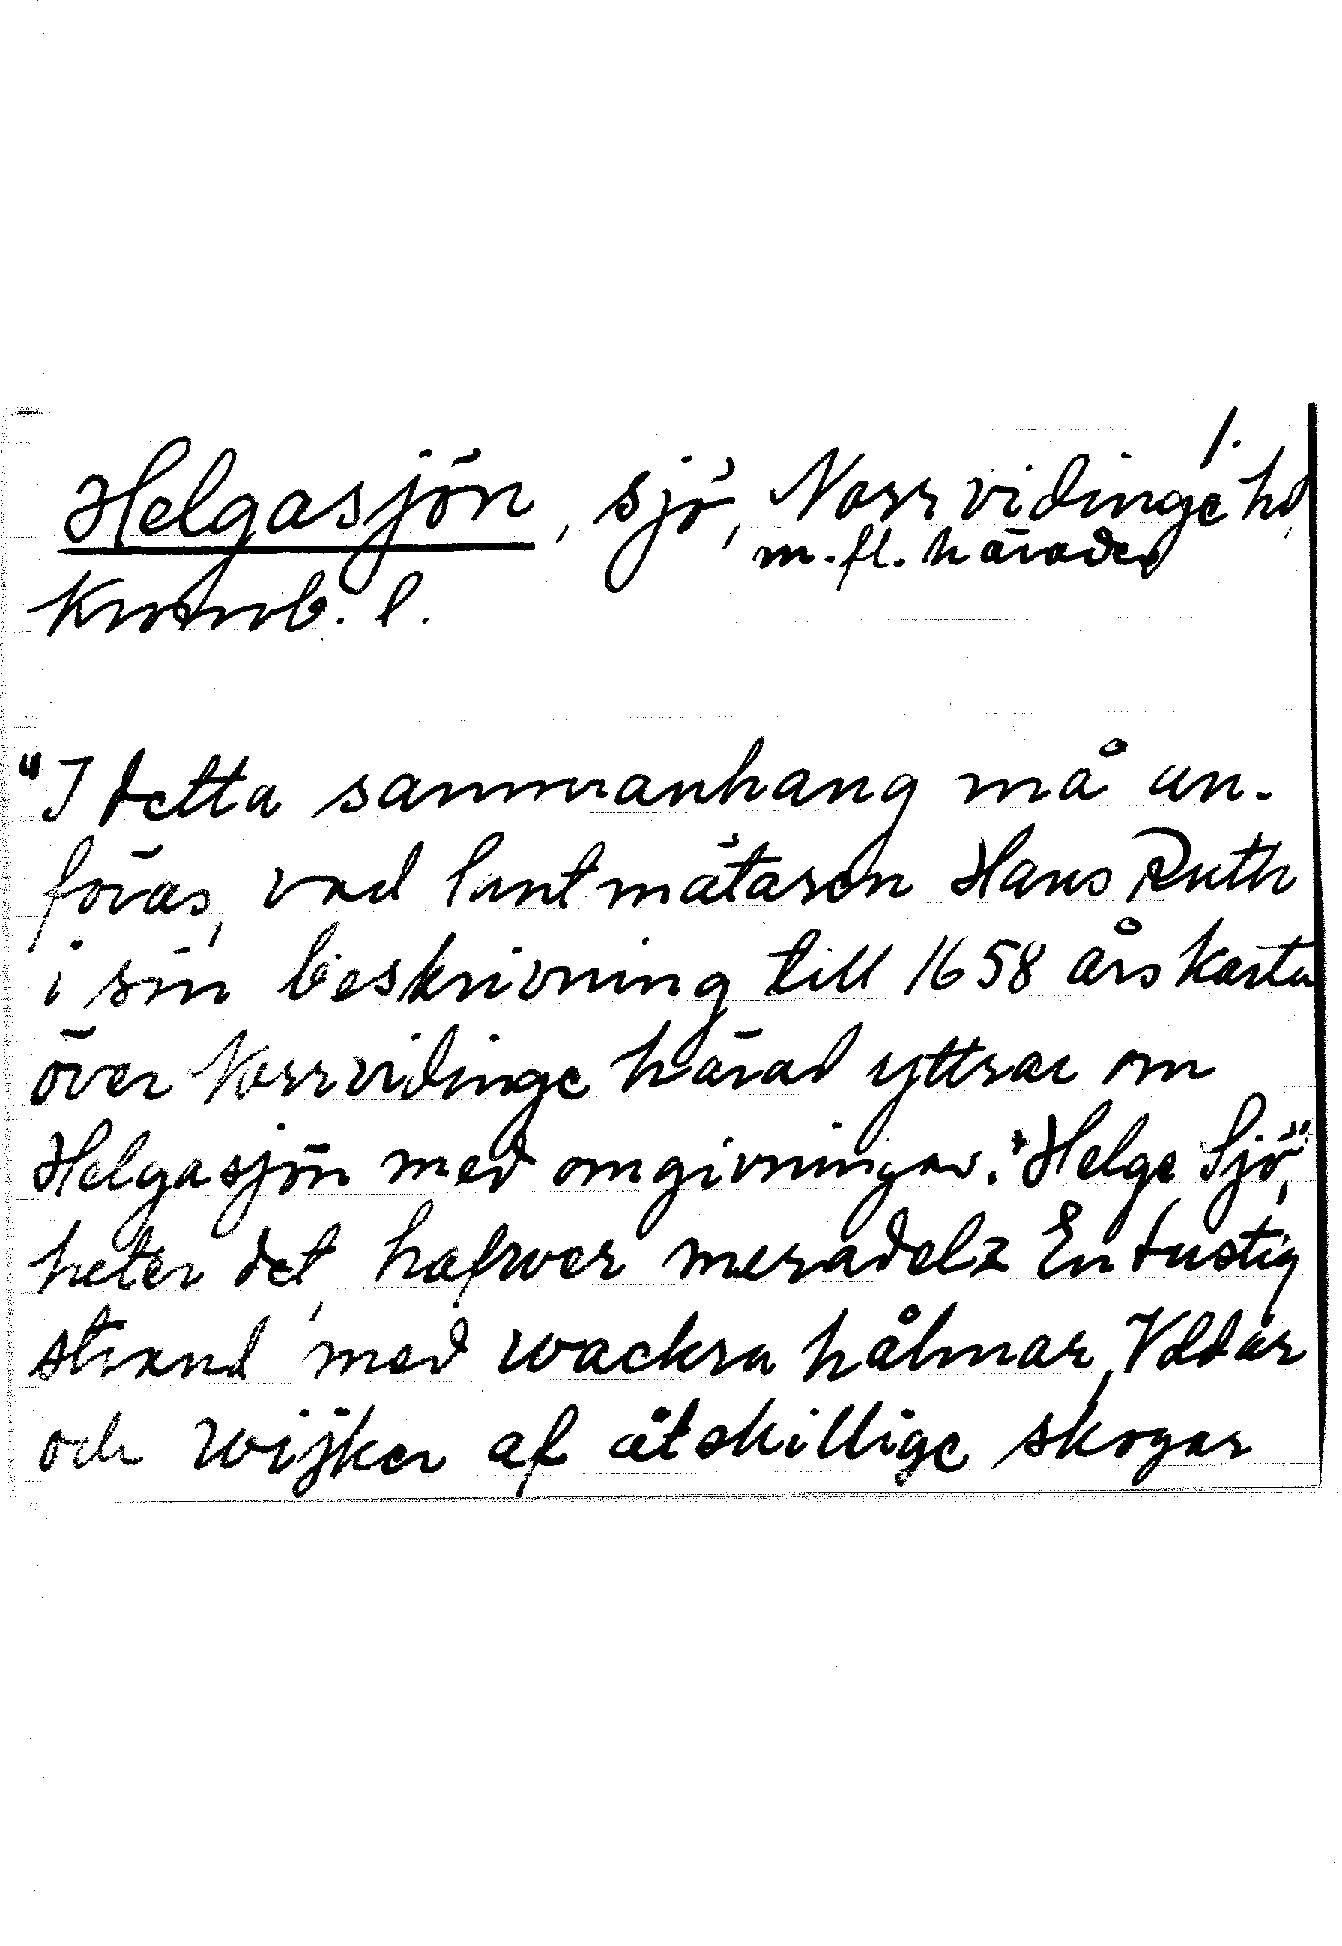 1.
Helgasjön, sjö, Norrvidinge hd
m. fl. härader
Kronob. l.
"I detta sammanhang må an-
föras, vad lantmätaren Hans Ruth
i sin beskrivning till 1658 års karta
över Norrvidinge härad yttrar om
Helgasjön med omgivningar. "Helge Sjö",
heter det, hafwer meradelz En lustig
strand med wackra hålmar, Vddar
och wijker af åtskillige skogar